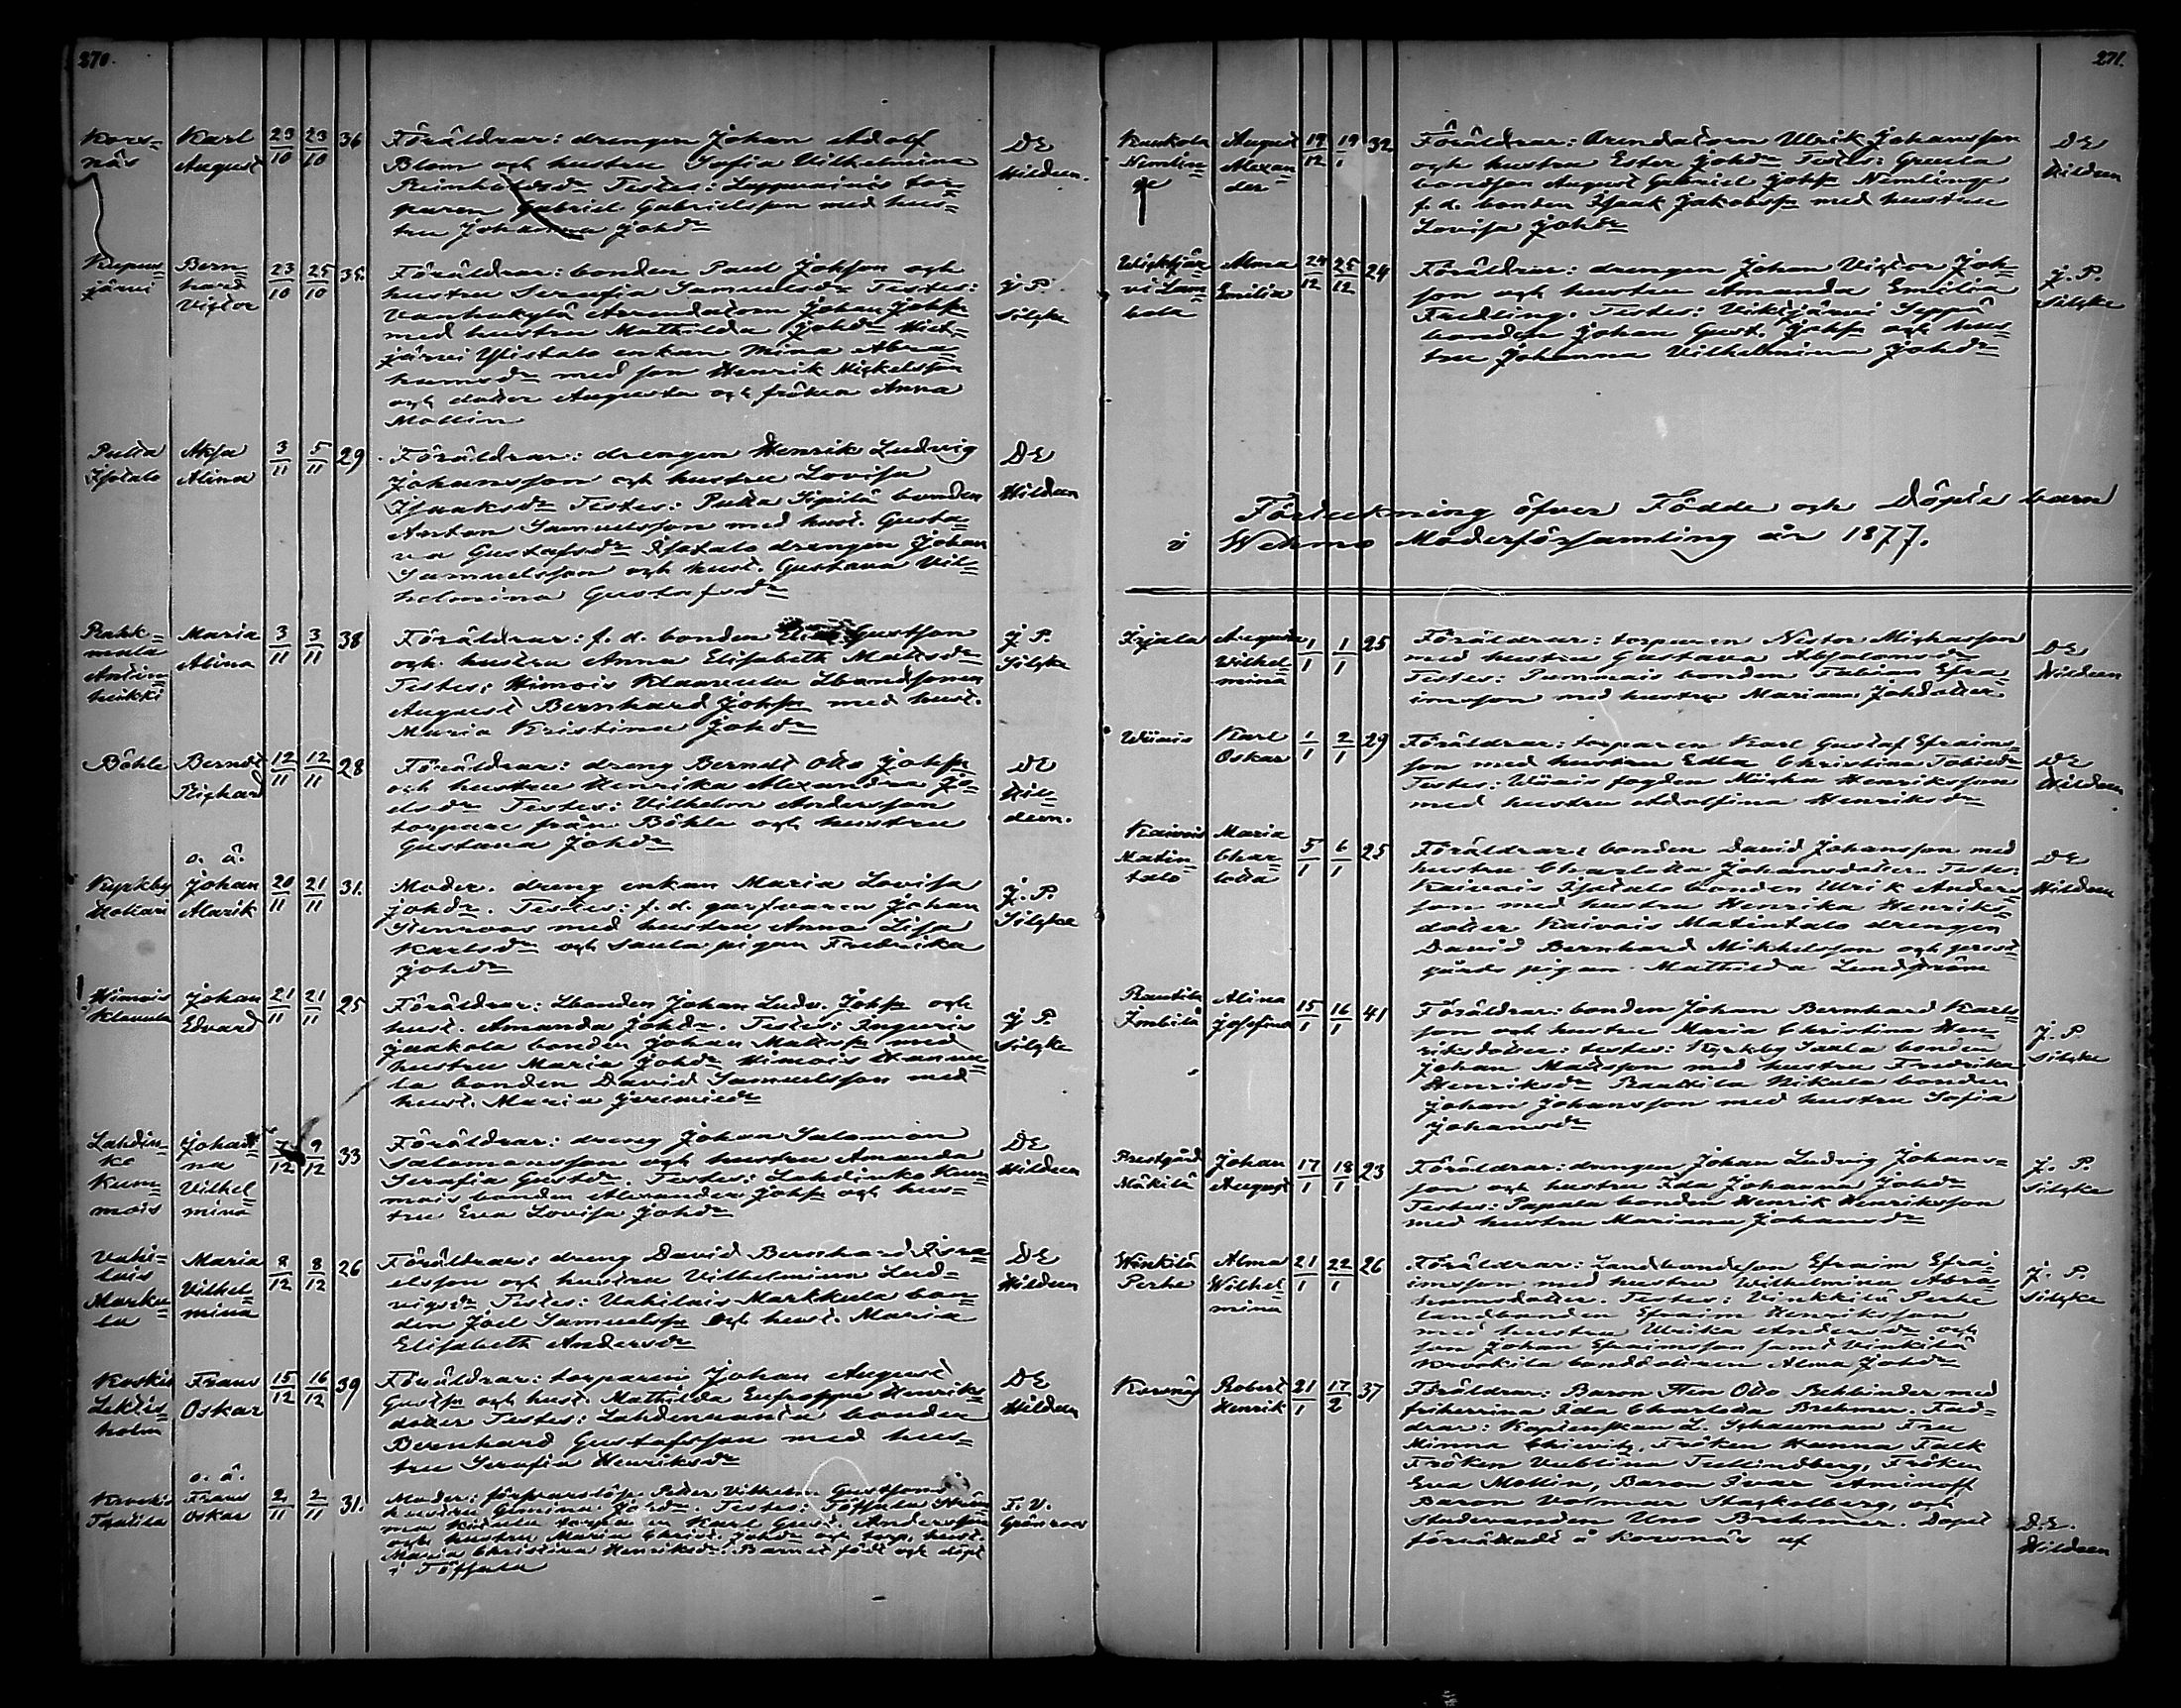 270.
Kors=
näs
Karl
August
23/10
23/10
36
Föräldrar: drengen Johan Adolf
Blom och hustru Sofia Vilhelmina
Reinholdsdr Testes: Lappvainio tor=
paren Gabriel Gabrielsson med hus=
tru Johanna Johdr
DE
Hildeen.
järvi
Bern=
hard
Victor
23/10
25/10
35.
Föräldrar: bonden Paul Johsson och
hustru Serafia Samuelsdr Testes:
Vanhakylä Arrendatorn Johan Johss
med hustru Mathilda Johdr Hiet=
järvi Ylistalo enkan Mina Abra=
hamsdr med son Henrik Michelsson
och dotter Augusta och fröken Anna
Mollin
J. P.
Silcke
Putta
Isotalo
Aksa
Alina
3/11
5/11
29
Föräldrar: drengen Henrik Ludvig
Johansson och hustru Lovisa
Isaaksdr Testes: Putta Sipilä bonden
Anton Samuelsson med hust. Gusta=
va Gustafsdr Isotalo drengen Johan
Samuelsson och hust. Gustava Vil=
helmina Gustafsdr
DE
Hildeen
Rahk=
mala
Antin=
heikki
Maria
Alina
3/11
3/11
38
Föräldrar: f. d. bonden Gustsson
och hustru Anna Elisabeth Mattsdr
Testes: Himois Klaavula Lbondsonen
August Bernhard Johss med hust.
Maria Kristina Johdr
J. P.
Silcke
Böhle
Berndt
Richard
12/11
12/11
28
Föräldrar: dreng Berndt Otto Johss
och hustru Henrika Alexandra Jo=
elsdr Testes: Vilhelm Andersson
torpare från Böhle och hustru
Gustava Johdr
DE
Hil=
deen.
Kyrkby
Hokari
o. ä.
Johan
Alarik
20/11
21/11
31.
Moder. dreng enkan Maria Lovisa
Johdr. Testes: f. d. garfvaren Johan
Stenroos med hustru Anna Lisa
Karlsdr och Saula pigan Fredrika
Johdr
J. P.
Silcke
Himois
Klaavula
Johan
Edvard
21/11
21/11
25
Föräldrar: Lbonden Johan Ludv. Johss och
hust. Amanda Johdr. Testes: Ingeris
Jaakola bonden Johan Mattss med
hustru Maria Johdr Himois Hannu=
la bonden David Samuelsson med
hust. Maria Jeremiedr
J. P.
Silcke
Lahdin=
ko
Kum=
mois
Johan=
na
Vilhel=
mina
7/12
9/12
33
Föräldrar: dreng Johan Salomon
Salomonsson och hustru Amanda
Serafia Gustdr. Testes: Lahdinko Kum=
mois bonden Alexander Johss och hus=
tru Eva Lovisa Johdr
DE
Hildeen
Vahi=
lais
Marku=
la
Maria
Vilhel=
mina
8/12
8/12
26
Föräldrar: dreng David Bernhard Isra=
elsson och hustru Vilhelmina Lud=
vigsdr Testes: Vahilais Markkula bon=
den Joel Samuelss och hust. Maria
Elisabeth Andersdr
DE
Hildeen
Koskis
Lektis=
holm
Frans
Oskar
15/12
16/12
39
Föräldrar: torparen Johan August
Gustss och hust. Mathilda Eufrosyne Henriks=
dotter Testes: Lahdenranta bonden
Bernhard Gustafsson med hus=
tru Serafia Henriksdr
DE
Hildeen
o. ä.
Frans
Oskar
2/11
2/11
31.
Moder: Peder Vilhelm Gustssons
hustru Johdr. Testes:
torparen Karl Gust. Andersson
och hustru Maria Christ. Johdr och torp. hust.
Maria Christina Henriksdr. Barnet född och döpt
i
F. V.
Grönroos
271.
Kaukola
Nemlin=
ge
August
Alexan=
der
19/12
19/1
32
Föräldrar: Arendatorn Ulrik Johansson
och hustru Ester Johdr Testes:
bondson August Gabriel Johss Nemlinge
f. d. bonden Isaak Jakobss med hustru
Lovisa Johdr
DE
Hildeen
Alma
Emilia
24/12
25/12
24
Föräldrar: drengen Johan Victor Joh=
son och hustru Amanda Emilia
Fredling. Testes: Vikkjärvi Seppä
bonden Johan Gust. Johss och hus=
tru Johanna Vilhelmina Johdr
J. P.
Silcke
Förteckning öfver Födde och Döpte barn
i Wehmo Moderförsamling år 1877.
Irjala
Augusta
Wilhel=
mina
1/1
1/1
25
Föräldrar: torparen Nestor Michasson
med hustru Gustava Absalomsdr
Testes: Tummais bonden Fabian Efra=
imsson med hustru Mariana Johdotter.
DE
Hildeen
Wiiais
Karl
Oskar
1/1
2/1
29
Föräldrar: torparen Karl Gustaf Efraims=
son med hustru Edla Christina Tobiedr
Testes: Wiiais fogden Micha Henriksson
med hustru Adolfina Henriksdr
DE
Hildeen
Kaivois
Matin=
talo
Maria
Char=
lotta
5/1
6/1
25
Föräldrar: bonden David Johansson med
hustru Charlotta Johansdotter. Testes:
Kaivois Isotalo bonden Ulrik Anders=
son med hustru Henrika Henriks=
dotter Kaivois Matintalo drengen
David Bernhard Mikkelsson och prest=
gårds pigan Mathilda Lundström
DE
Hildeen
Rautila
Imbilä
Alina
Josefina
15/1
16/1
41
Föräldrar: bonden Johan Bernhard Karls=
son och hustru Maria Christina Hen=
riksdotter: testes: Kyrkby Saula bonden
Johan Matsson med hustru Fredrika
Henriksdr Rauttila Nikula bonden
Johan Johansson med hustru Sofia
Johansdr
J. P.
Silcke
Prestgård
Mäkilä
Johan
August
17/1
18/1
23
Föräldrar: drengen Johan Ludvig Johans=
son och hustru Ida Johanna Johdr
Testes: Papala bonden Henrik Henriksson
med hustru Mariana Johansdr
J. P.
Silcke
Winkilä
Perhe
Alma
Wilhel=
mina
21/1
22/1
26
Föräldrar: Landbondeson Efraim Efra=
imsson med hustru Wilhelmina Abra=
hamsdotter. Testes: Vinkkilä Perhe
landbonden Efraim Henriksson
med hustru Ulrika Andersdr och
son Johan Efraimsson samt Vinkilä
bonddottren Alma Johdr
J. P.
Silcke
Korsnäs
Robert
Henrik
21/1
17/2
37
Föräldrar: Baron Sten Otto Rehbinder med
friherrinna Ida Charlotta Brehmer. Fad=
drar: Kaptenskan L. Schauman Fru
Minna Chiewitz, Fröken Hanna Falk
Fröken Vublina Tellindberg, Fröken
Eva Mollin, Baron Ivar Aminoff
Baron Volmar Stackelberg, och
Studeranden Uno Brehmer. Dopet
förrättadt å Korsnäs af
D.E.
Hildeen